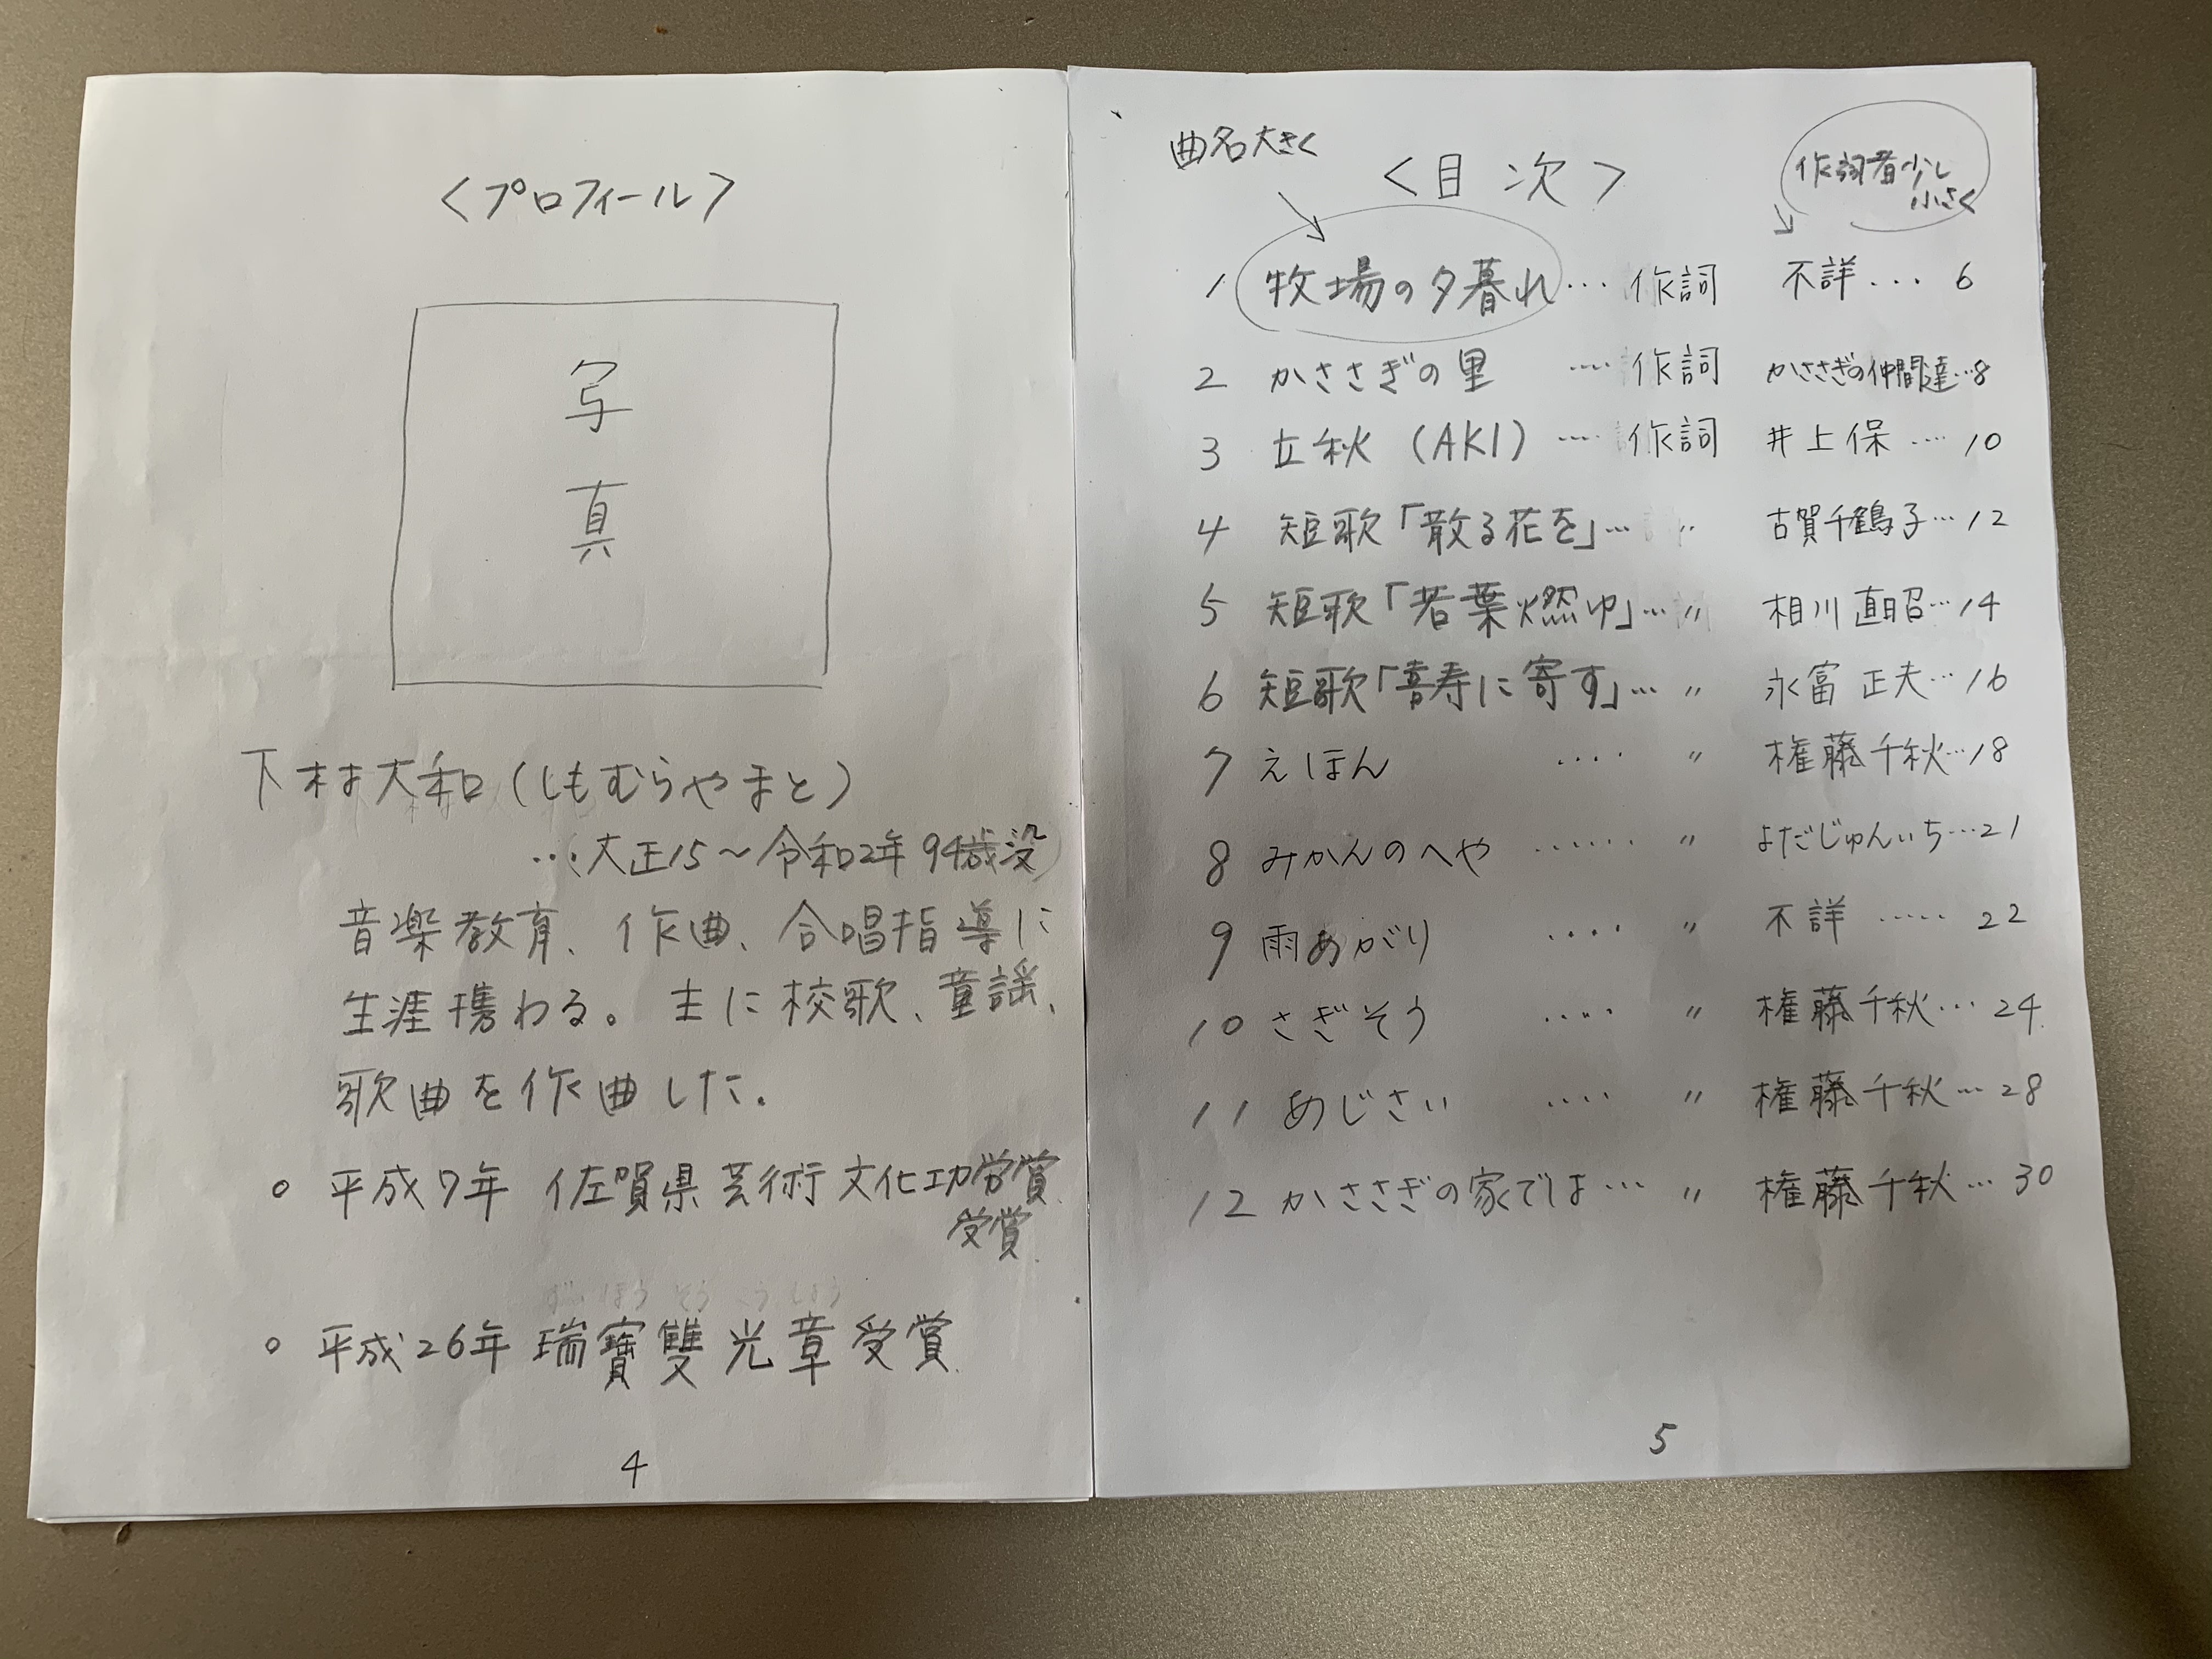 <プロフィール>
写
真
下村大和(しもむらやまと)
…(大正15～令和2年 94歳没)
音楽教育、作曲、合唱指導に
生涯携わる。主に校歌、童謡、
歌曲を作曲した。
○ 平成7年 佐賀県芸術文化功労賞
受賞.
ずいほうそうこうしょう
○ 平成26年 瑞寶雙光章受賞.
4
曲名大きく
<目次>
作詞者少し
小さく
1 牧場の夕暮れ… 作詞 不詳... 6
2 かささぎの里 …. 作詞 かささぎの仲間達…8
3 立秋(AKI) …. 作詞 井上保 …. 10
4 短歌「散る花を」… 〃 古賀千鶴子…12
5 短歌「若葉燃ゆ」… 〃 相川直昭…14
6 短歌「喜寿に寄す」… 〃 永富正夫…16
7 えほん …. 〃 権藤千秋…18
8 みかんのへや …… 〃 よだじゅんいち…21
9 雨あがり …. 〃 不詳 ….. 22
10 さぎそう …. 〃 権藤千秋… 24.
11 あじさい …. 〃 権藤千秋… 28
12 かささぎの家では… 〃 権藤千秋… 30
5